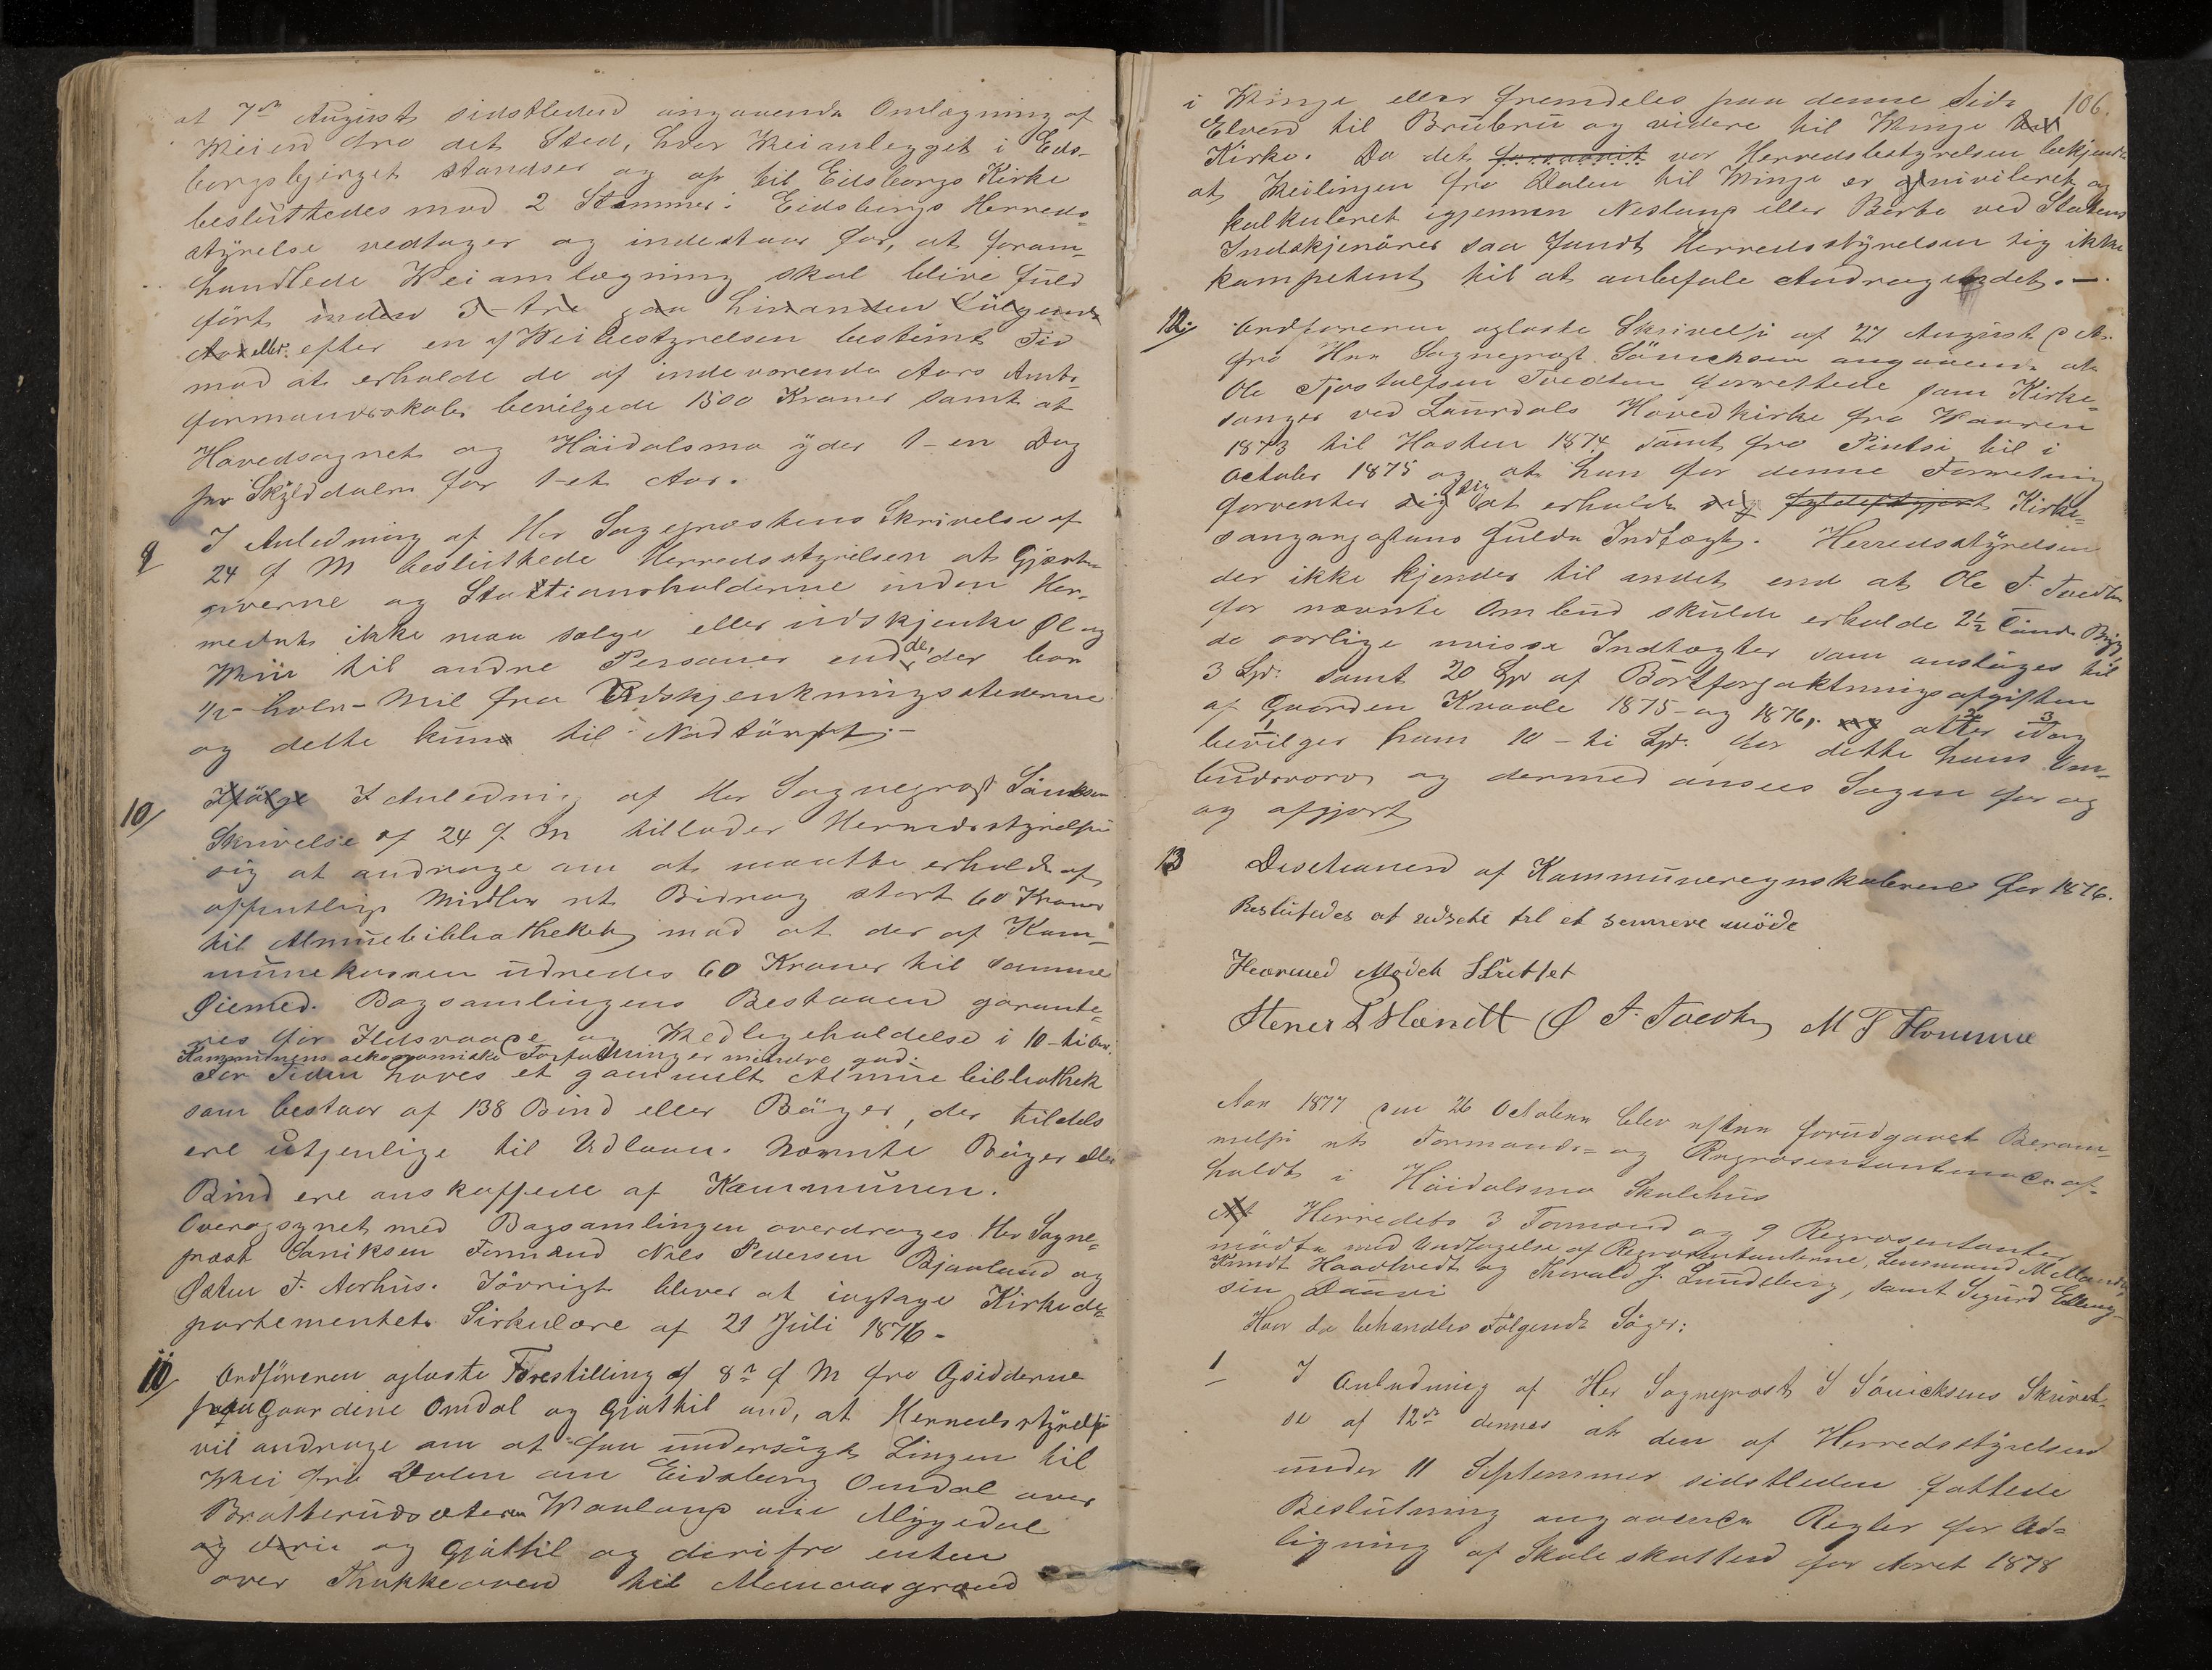 at 7de August sidstleden angaaende Omlægning af
Veien fra det Sted, hvor Veianlegget i Eids-
borgsbjerget standser og op til Eidsborgs Kirke
besluttedes mod 2 Stemmer: Eidsborgs Herreds-
styrelse vedtager og indestaar for, at foram-
handlede Veiomlægning skal blive fuld
ført inden 3-tre paa hinanden følgende
Aar eller efter en af Veibestyrelsen bestemt Tid
mod at erholde de af indeværende Aars Amts-
formandskab bevilgede 1500 Kroner samt at
Hovedsognet og Høidalsmo yder 1-en Dag
per Skylddaler for 1-et Aar.
9 I Anledning af Hr Sogneprestens Skrivelse af
24 f M besluttede Herredsstyrelsen at Gjæst-
giverne og Stationsholderne inden Her-
redet ikke maa sælge eller udskjenke Øl og
Viin til andre Personer end de, der bor
1/2- halv- Mil fra Udskjenkningsstederne
og dette kun til Nødtørft.-
10/ Ifølge I Anledning af Hr Sogneprest Sönicksen
Skrivelse af 24 f. M tillader Herredsstyrelsen
sig at andrage om at maatte erholde af
offentlige Midler et Bidrag stort 60 Kroner
til Almuebibliotheket mod at der af Kom-
munekassen udredes 60 Kroner til samme
Øiemed. Bogsamlingens Bestaaen garante-
res for Ildsvaade og Vedligeholdelse i 10-ti Aar.
Kommunens oekonomiske Forfatning er mindre god.
For Tiden haves et gammelt Almue bibliothek
som bestaar af 138 Bind eller Bøger, der tildels
ere utjenlige til Udlaan. Nævnte Bøger eller
Bind ere anskaffede af Kommunen.
Overopsynet med Bogsamlingen overdrages Hr Sogne-
prest Søniksen Formand Nils Pedersen Bjaaland og
Østen T. Aarhus. Iøvrigt bliver at iagtage Kirkede-
partementets Sirkulære af 21 Juli 1876-
11/ Ordføreren oplæste Forestilling af 8de f M fra Opsidderne
paa Gaardene Omdal og Gjøthil om, at Herredsstyrelsen
vil andrage om at faa undersøgt Linjen til
Vei fra Dalen om Eidsborg Omdal over
Bratterudsæteren Vaalaup
og og Gjøthil og derifra enten
over til
106.
i Vinje eller fremdeles paa denne Side
Elven til Brubru og videre til Vinje
Kirke. Da det var Herredsbestyrelsen bekjendt
at Veilinjen fra Dalen til Vinje er nivileret og
kalkuleret igjennem Neslaup eller Børte ved Statens
Indskjenører saa fandt Herredsstyrelsen sig ikke
kompetent til at anbefale Andragendet.-
12. Ordføreren oplæste Skrivelse af 27 August d A
fra Hrr Sogneprest Sönicksen angaaende at
Ole Tjostolfsen Tvedten forrettede som Kirke-
sanger ved Laurdals Hovedkirke fra Vaaren
1873 til Høsten 1874 samt fra Pintsi til i
October 1875 og at han for denne Forretning
forventer sig sig at erholde sig Kirke-
sangerpostens fulde Indtægt. Herredsstyrelsen
der ikke kjender til andet end at Ole T Tvedten
for nævnte Ombud skulde erholde 2 1/2 Tønde Byg,
de aarlige uvisse Indtægter som ansluges til
3 Spd: samt 20 Spd af Bortforpaktningsafgiften
af Gaarden Kvaale 1875- og 1876, og atter idag
bevilger ham 10-ti Spd. for dette hans Om-
budsværv og dermed ansees Sagen for og
og afgjort
13 Discitionen af Kommuneregnskaberne for 1876.
Beslutedes at udsete til et sennere möde
Hermed Mödet Sluttet
Stener L Mandt O T. Tvedten M T Homme
Aar 1877 den 26 October blev efter forudgaaet Beram-
melse et Formands- og Representantmøde af-
holdt i Höidalsmo Skolehus
At Herredets 3 Formænd og 9 Representanter
mødte med Undtagelse af Representanterne, Lensmand
Knudt Haatvedt og Thorvald J. Lundeberg, samt Sigurd
sin
Hvor da behandles Følgende Sager:
1 I Anledning af Her Sogneprest S Sönicksens Skrivel-
se af 12de dennes at den af Herredsstyrelsen
under 11 Septemmer sidstleden fattede
Beslutning angaaende Regler for Ud-
ligning af Skoleskatten for Aaret 1878